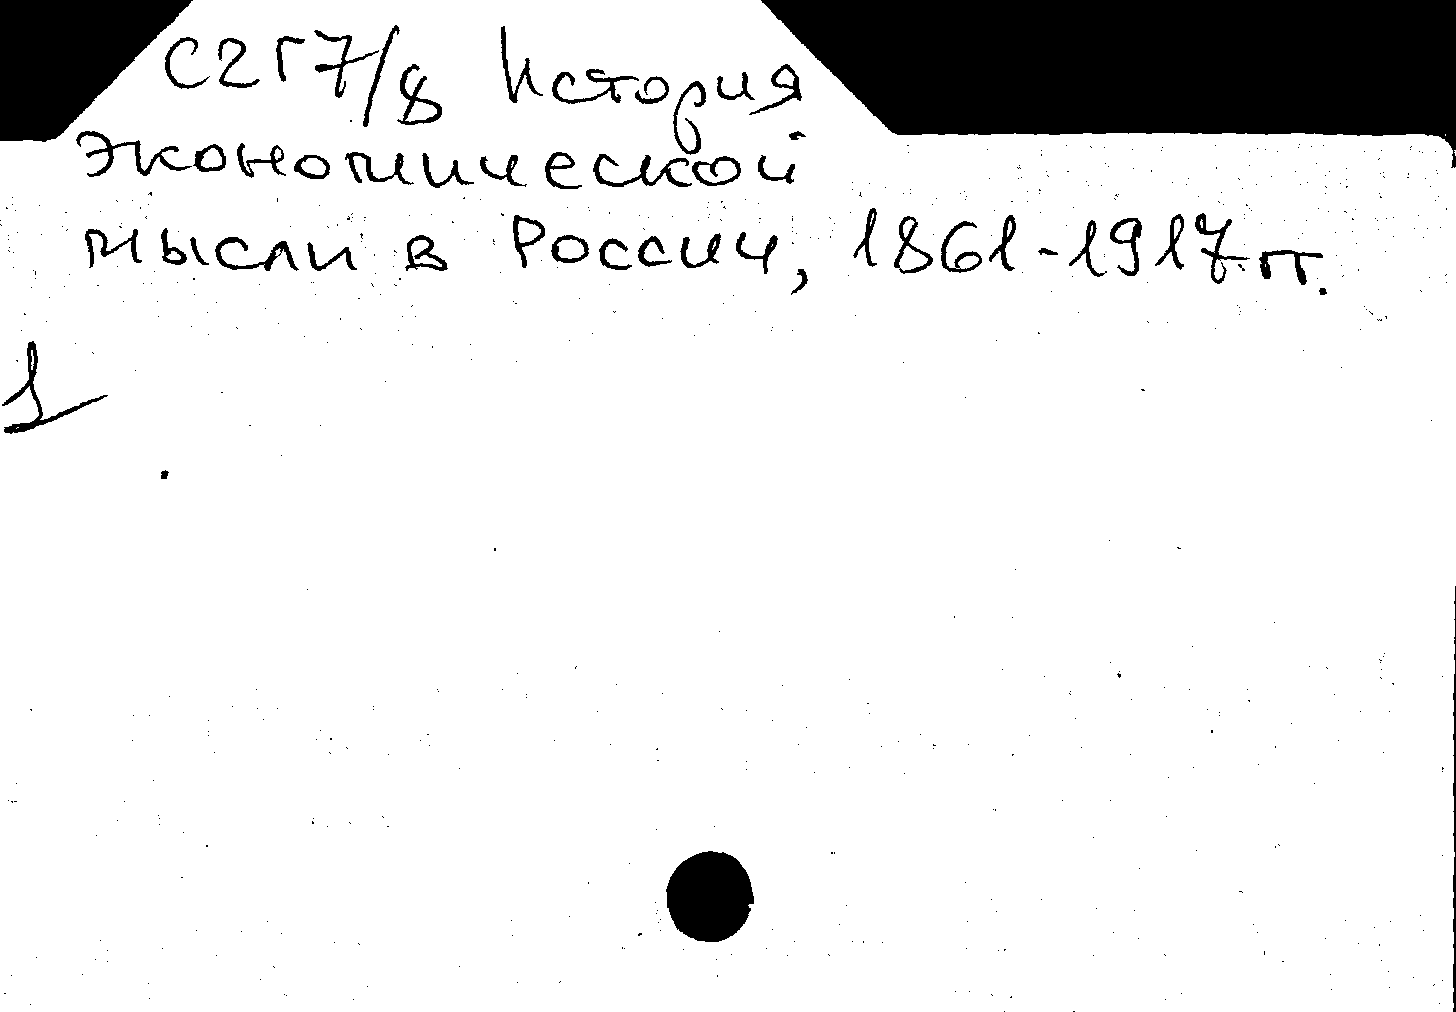 С2Г7/8 История
экономической
мысли в России, 1861-1917 гг.
1